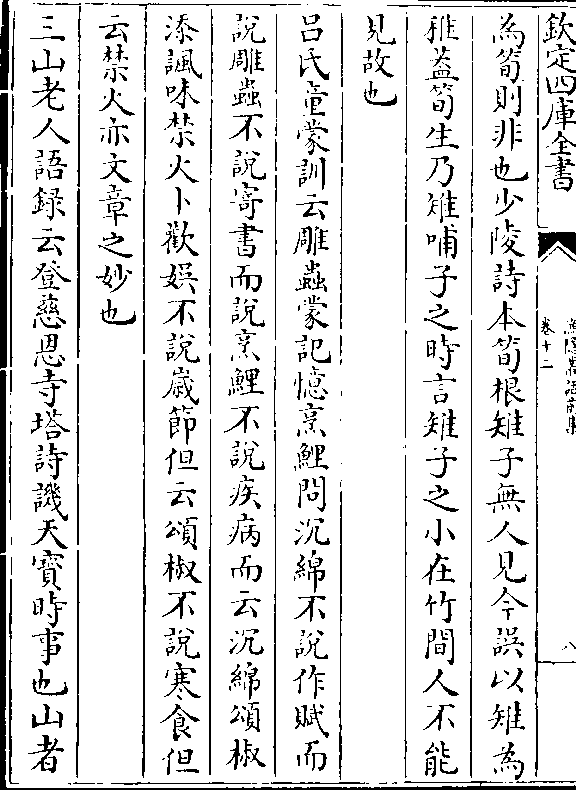 欽定四庫全書
卷十二
八
為筍則非也少陵詩本筍根雉子無人見今誤以雉為
稚蓋筍生乃雉哺子之時言雉子之小在竹間人不能
見故也
呂氏童蒙訓云雕蟲蒙記憶烹鯉問沉綿不說作賦而
說雕蟲不說寄書而說烹鯉不說疾病而云沉綿頌椒
添諷味禁火卜歡娛不說歲節但云頌椒不說寒食但
云禁火亦文章之妙也
三山老人語録云登慈恩寺塔詩譏天寳時事也山者